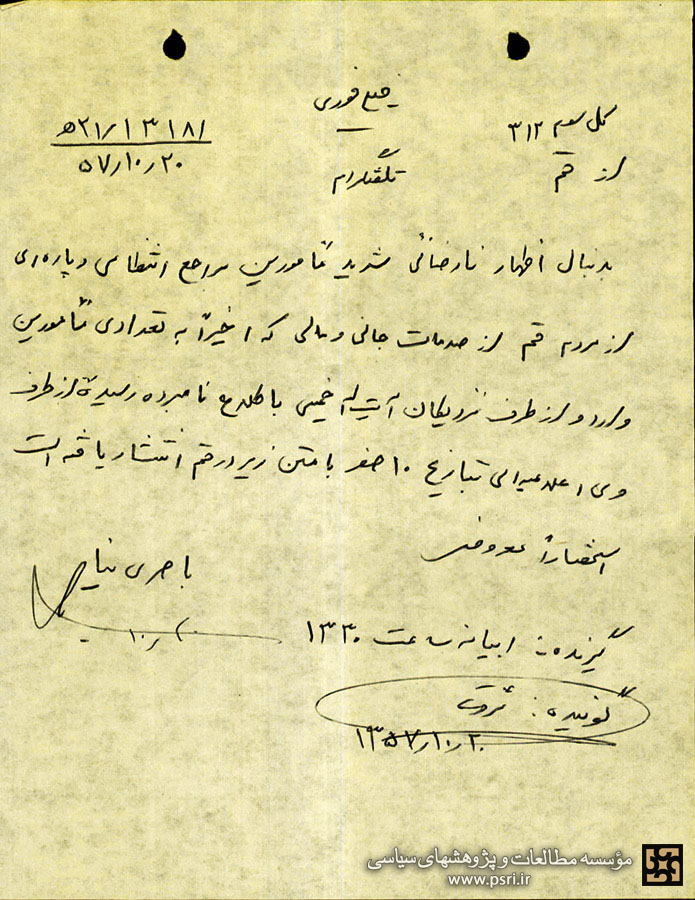 خیلی فوری
کل سوم ۳۱۲
۱۳۱۸۱/ﻫ۲۱
۵۷/۱۰/۲۰
از قم
تلگرام
بدنبال اظهار نارضائی شدید مأمورین مراجع انتظامی و پاره‌ای
از مردم قم از صدمات جانی و مالی که اخیراً به تعدادی مأمورین
وارد و از طرف نزدیکان آیت اله خمینی باطلاع نامبرده رسیده از طرف
وی اعلامیه‌ای بتاریخ ۱۰ صفر با متن زیر در قم انتشار یافته است
استحضاراً معروض
باصری نیا
۱۰/۲۰
گیرنده: ابیانه ساعت ۱۳۳۰
گوینده: ثروت
۱۳۵۷/۱۰/۲۰
مؤسسه مطالعات و پژوهشهای سیاسی
www.psri.ir